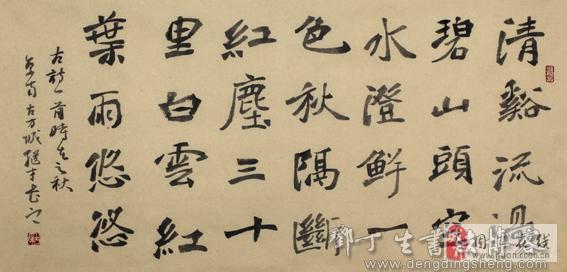 清谿流過
碧山頭空
水澄鮮一
色秋隔斷
紅塵三十
里白雲紅
葉兩悠悠
古詩一首時在之秋
鄧丁生書法
www.dengdingsheng.com